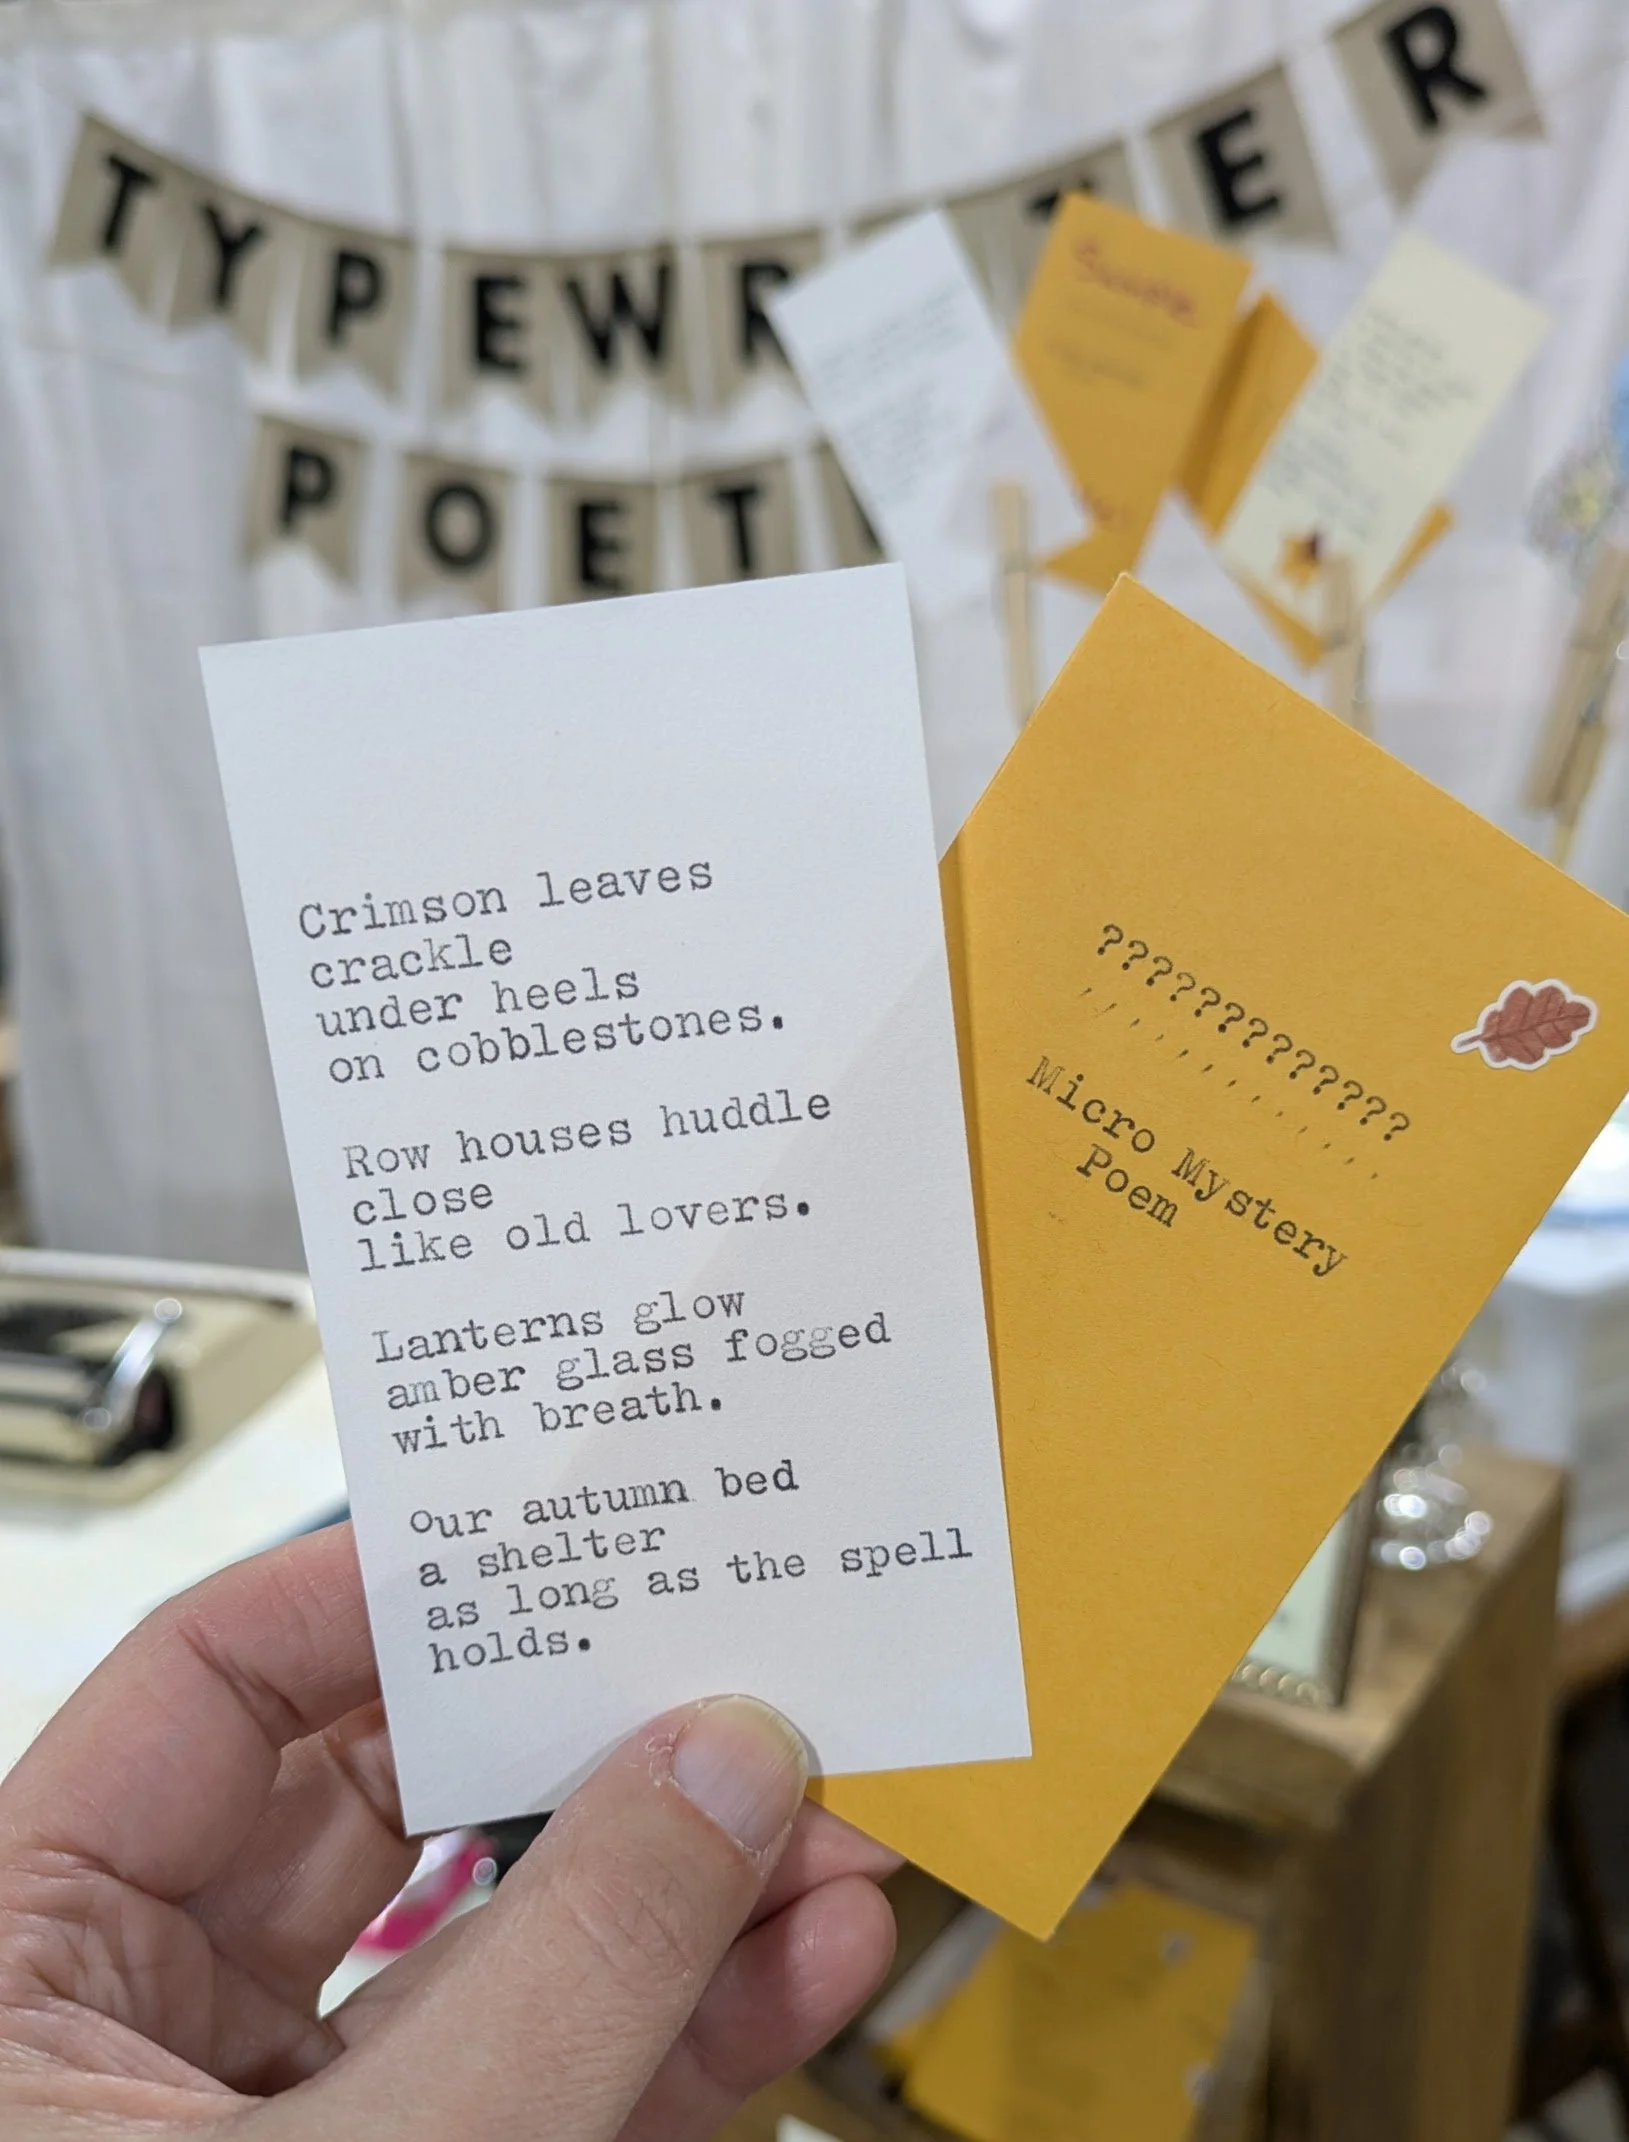 TYPEWR TER
POET
Crimson leaves
crackle
under heels
on cobblestones.
Row houses huddle
close
like old lovers.
Lanterns glow
amber glass fogged
with breath.
Our autumn bed
a shelter
as long as the spell
holds.
?????????????
,,,,,,,,,,,,,
Micro Mystery
Poem